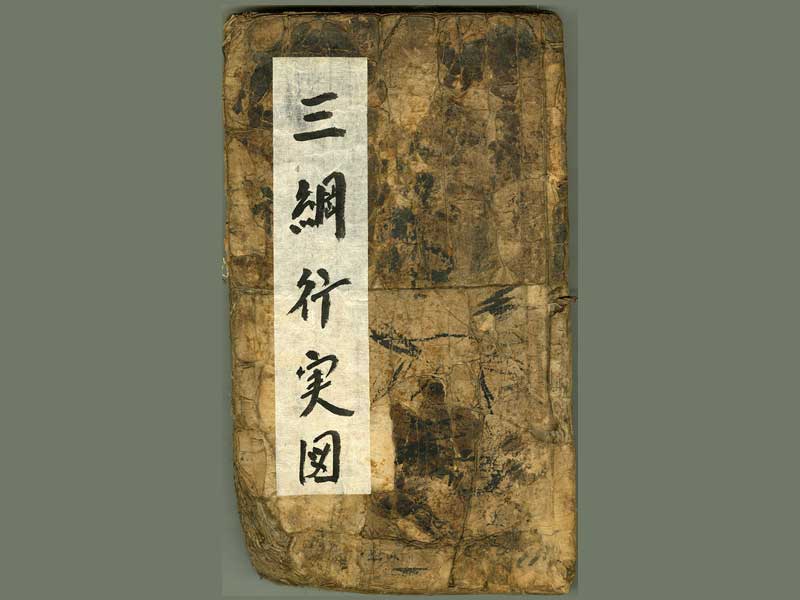 三綱行実図